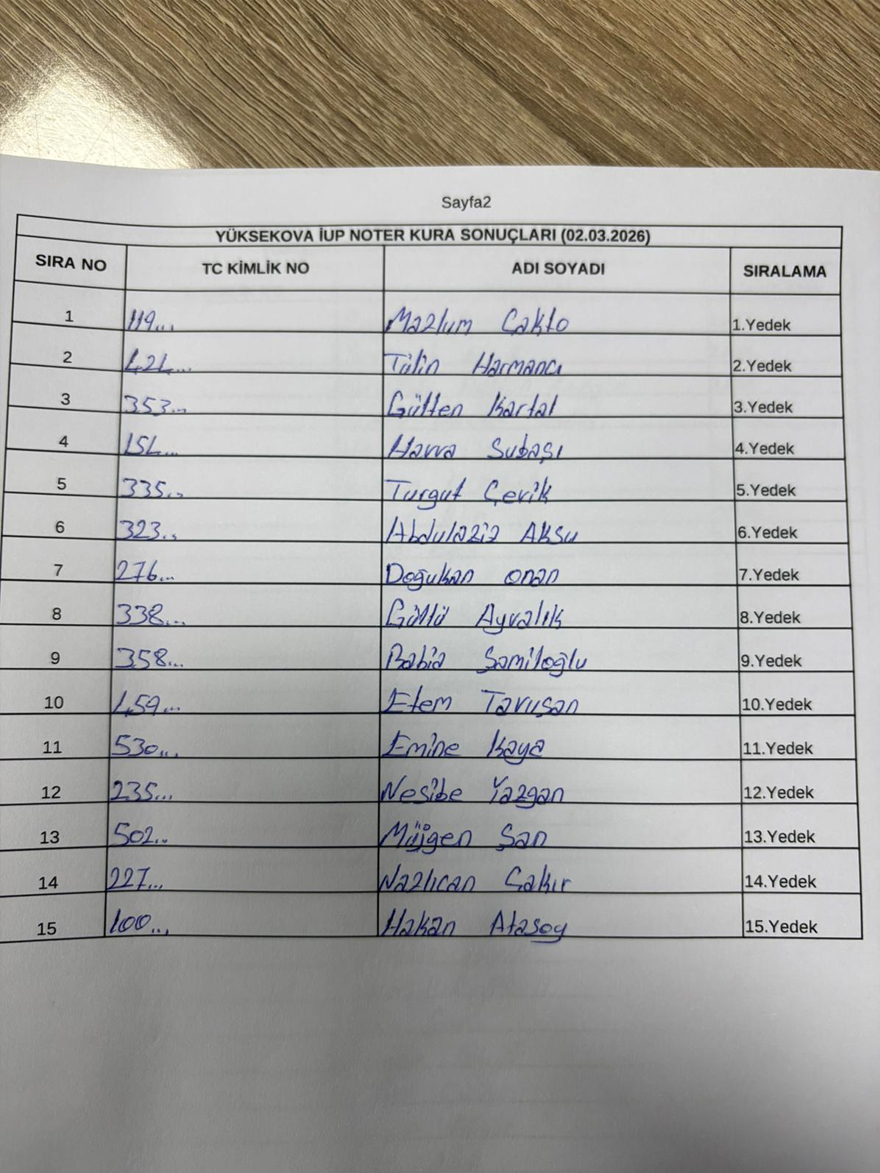 Sayfa2
YÜKSEKOVA İUP NOTER KURA SONUÇLARI (02.03.2026)
SIRA NO TC KİMLİK NO ADI SOYADI SIRALAMA
1 119... Mazlum Çakto 1.Yedek
2 424... Tülin Harmancı 2.Yedek
3 353... Gülten Kartal 3.Yedek
4 154... Havva Subaşı 4.Yedek
5 335... Turgut Çevik 5.Yedek
6 323... Abdulaziz Aksu 6.Yedek
7 276... Doğukan onan 7.Yedek
8 338... Güllü Ayvalık 8.Yedek
9 358... Rabia Şamiloğlu 9.Yedek
10 459... Etem Tavuşan 10.Yedek
11 530... Emine Kaya 11.Yedek
12 235... Nesibe Yazgan 12.Yedek
13 502... Müjgen Şan 13.Yedek
14 227... Nazlıcan Çakır 14.Yedek
15 100... Hakan Atasoy 15.Yedek